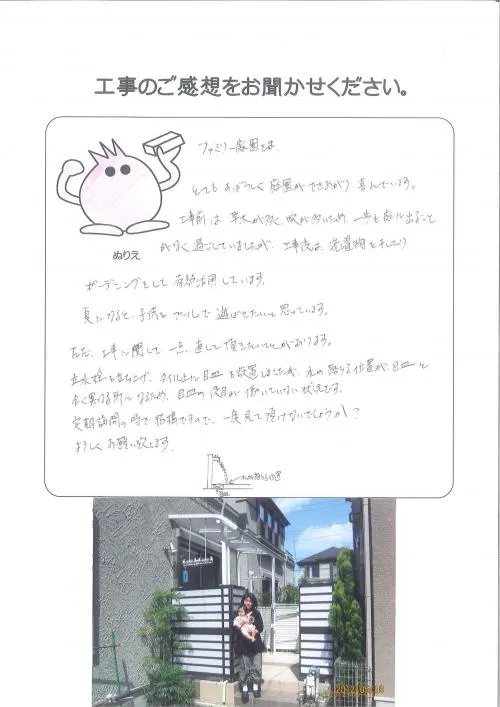 工事のご感想をお聞かせください。
ファミリー庭園さま
とても すばらしく 庭園が できあがり 喜んでいます。
工事前は 草木が多く 蚊が多いため 一歩も庭に出ること
がなく過ごしていましたが、工事後は 洗濯物を干したり
ぬりえ
ガーデニングをして 有効活用しています。
夏になると、子供を プールで 遊ばせたいと思っています。
ただ、工事に関して 一点 直して頂きたいことがあります。
立水栓を立ち上げ、タイル上に目皿を設置しましたが、水の落ちる位置が、目皿と
全く異なる所になるため、目皿の役目が働いていない状況です。
定期訪問の時で結構ですので、一度見て頂けないでしょうか?
よろしくお願い致します。
水の落ちる位置
目皿